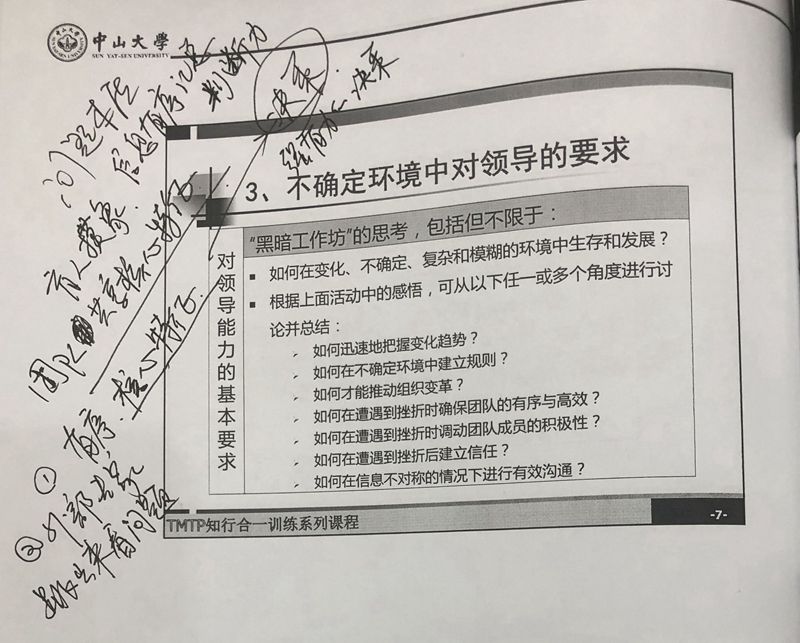 中山大學
SUN YAT-SEN UNIVERSITY
判断力
决策
决策
有人
团队 共享核心特征
有序 核心特征
①
② 外部
看问题
3、不确定环境中对领导的要求
对领导能力的基本要求
“黑暗工作坊”的思考，包括但不限于：
▪ 如何在变化、不确定、复杂和模糊的环境中生存和发展？
▪ 根据上面活动中的感悟，可从以下任一或多个角度进行讨
论并总结：
如何迅速地把握变化趋势？
如何在不确定环境中建立规则？
如何才能推动组织变革？
如何在遭遇到挫折时确保团队的有序与高效？
如何在遭遇到挫折时调动团队成员的积极性？
如何在遭遇到挫折后建立信任？
如何在信息不对称的情况下进行有效沟通？
TMTP知行合一训练系列课程
-7-